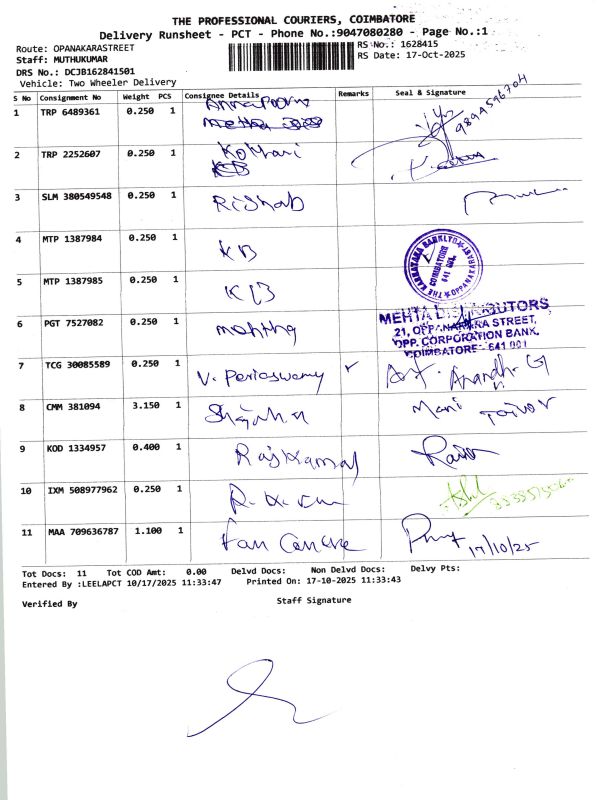 THE PROFESSIONAL COURIERS, COIMBATORE
Delivery Runsheet - PCT - Phone No.:9047080280 - Page No.:1
Route: OPANAKARASTREET RS No.: 1628415
Staff: MUTHUKUMAR RS Date: 17-Oct-2025
DRS No.: DCJB162841501
Vehicle: Two Wheeler Delivery
S No Consignment No Weight PCS Consignee Details Remarks Seal & Signature
1 TRP 6489361 0.250 1 Annapoorna
2 TRP 2252607 0.250 1 Kothari
3 SLM 380549548 0.250 1 Rishab
4 MTP 1387984 0.250 1 KB
THE KARNATAKA BANK LTD
COIMBATORE
641 001
5 MTP 1387985 0.250 1 KB
6 PGT 7527082 0.250 1
MEHTA DISTRIBUTORS
21, OPPANAKARA STREET,
OPP. CORPORATION BANK,
COIMBATORE - 641 001
7 TCG 30085589 0.250 1 V. Periaswamy Anandh. G
8 CMM 381094 3.150 1 Mani
9 KOD 1334957 0.400 1 Rajkamal
10 IXM 508977962 0.250 1
11 MAA 709636787 1.100 1 17/10/25
Tot Docs: 11 Tot COD Amt: 0.00 Delvd Docs: Non Delvd Docs: Delvy Pts:
Entered By :LEELAPCT 10/17/2025 11:33:47 Printed On: 17-10-2025 11:33:43
Verified By Staff Signature